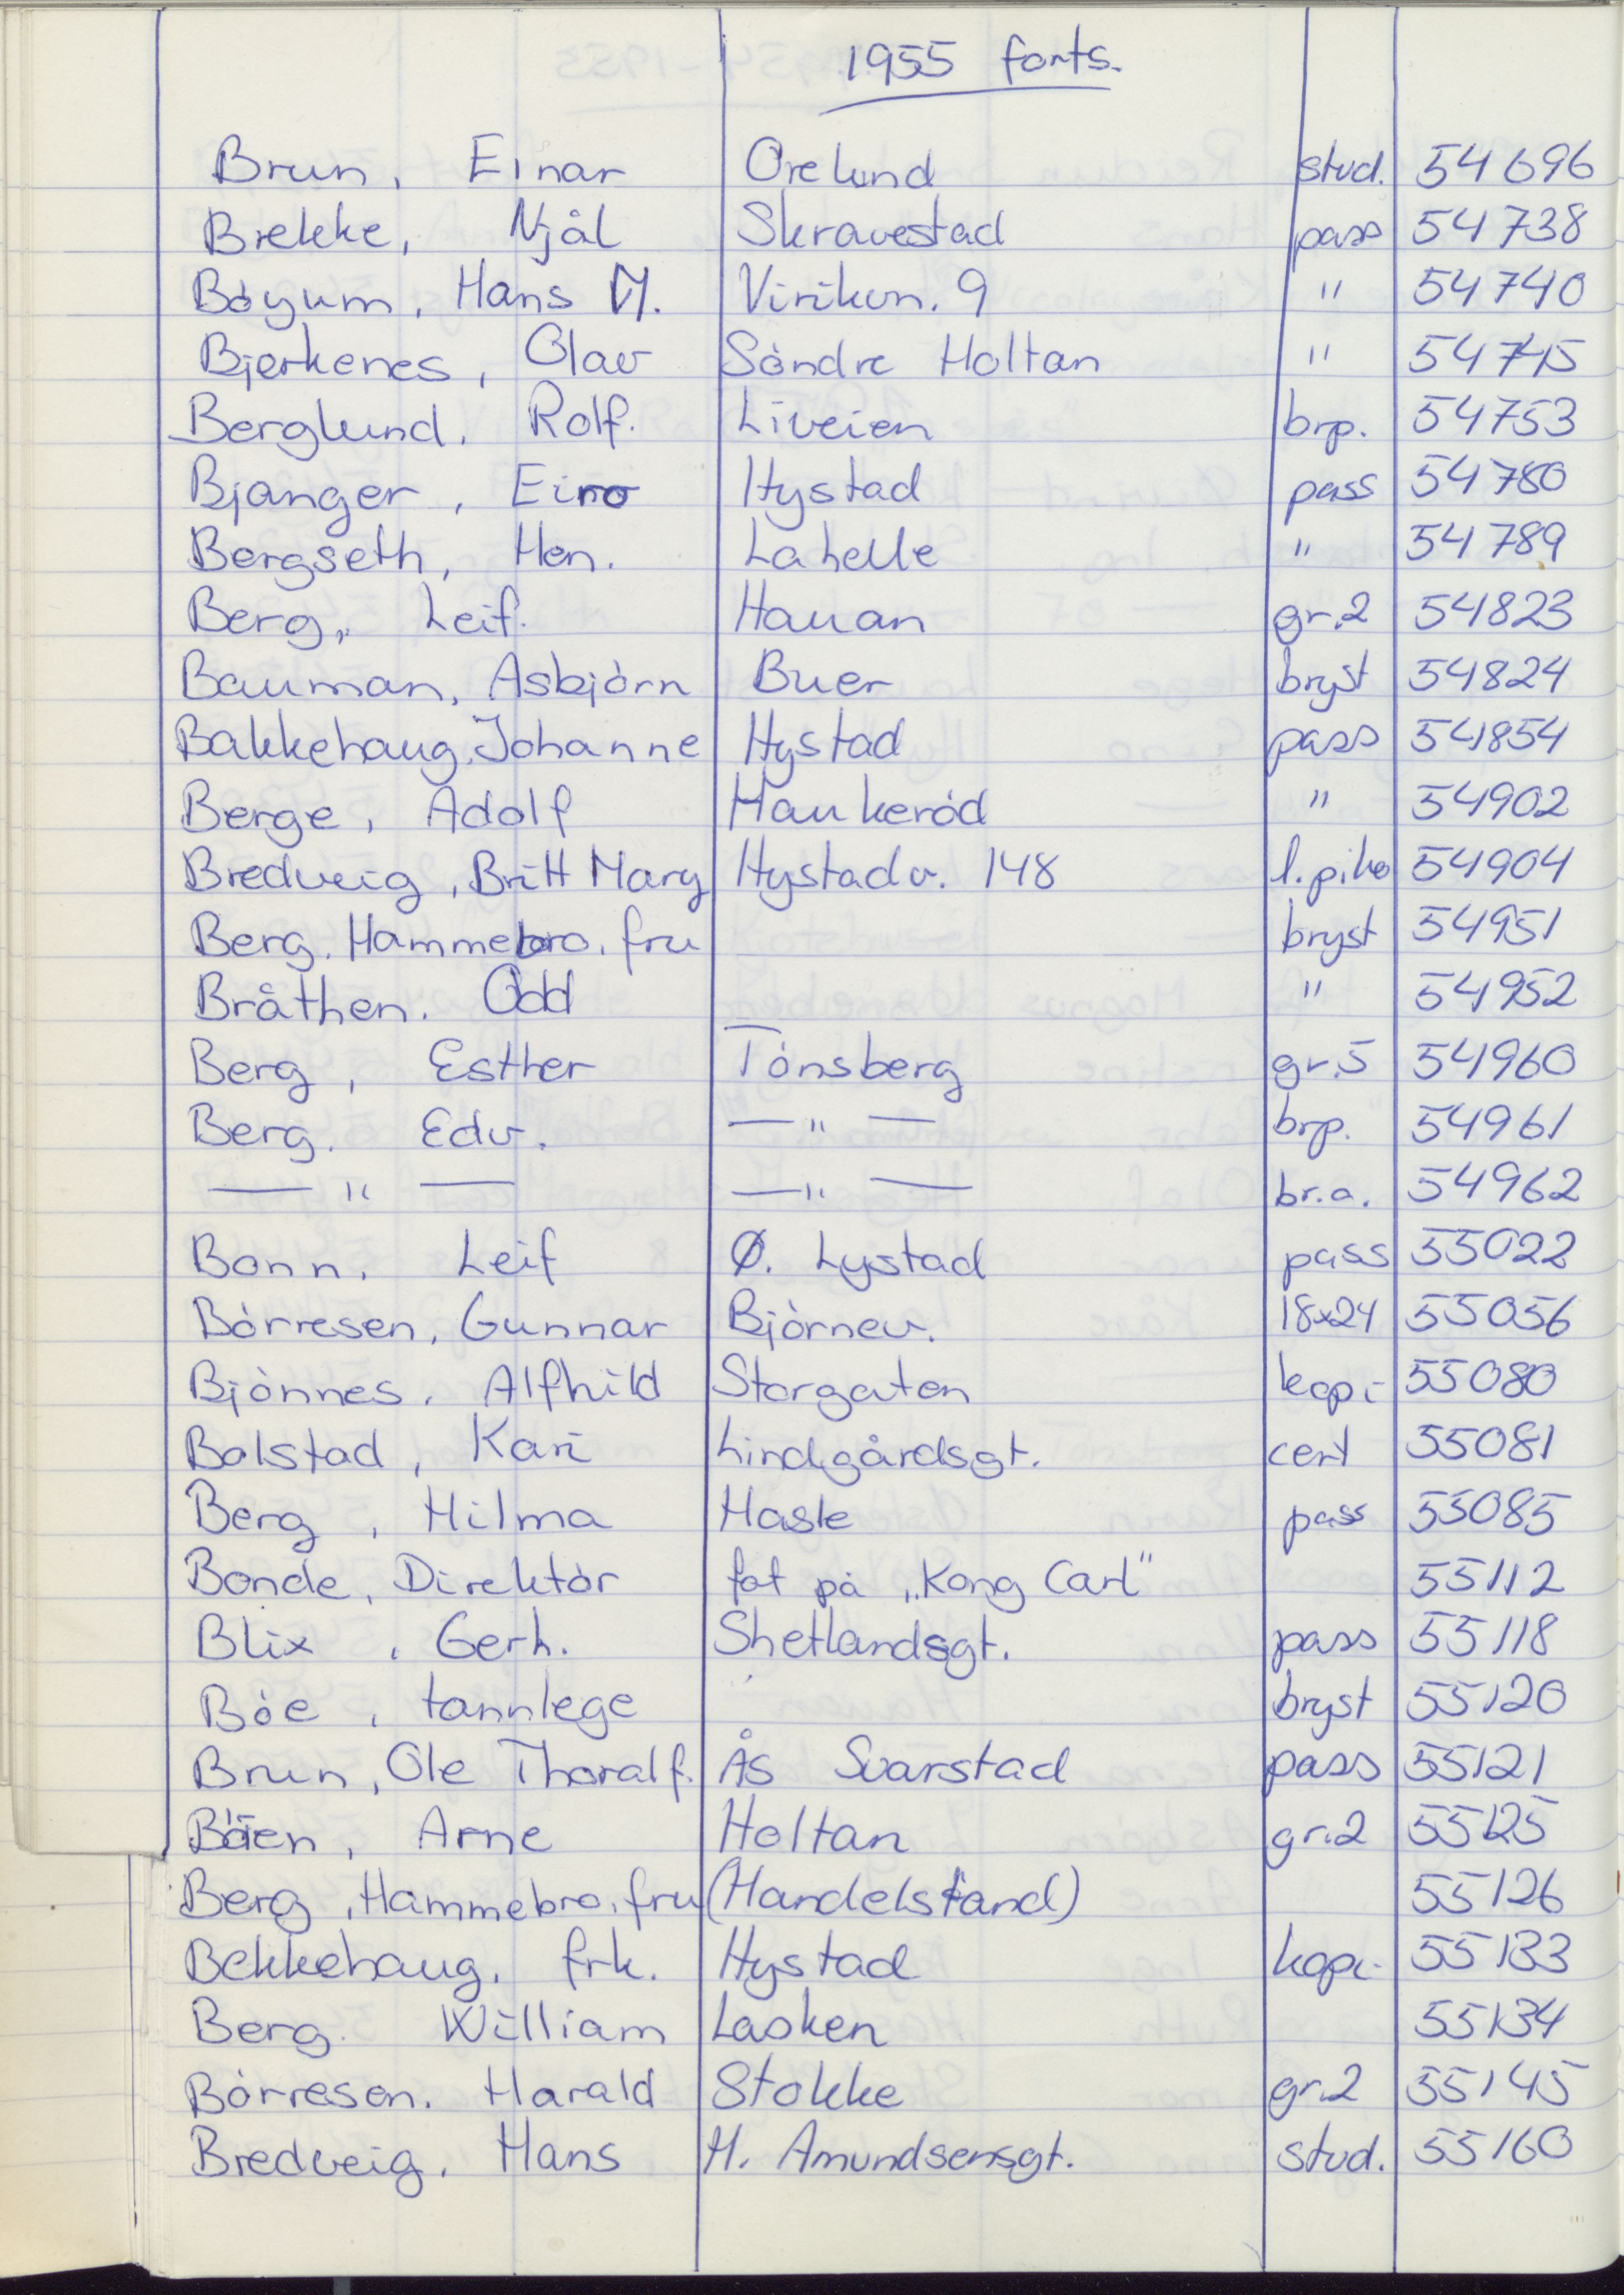 1955 forts.
Brun, Einar Orelund stud. 54696
Brekke, Njål Skravestad pass 54738
Bóyum, Hans M. Virikvn. 9 " 54740
Bjerkenes, Olav Sóndre Holtan " 54745
Berglund, Rolf. Liveien brp. 54753
Bjanger, Eino Hystad pass 54780
Bergseth, Hen. Lahelle " 54789
Berg, Leif. Hauan gr.2 54823
Bauman, Asbjórn Buer bryst 54824
Bakkehaug, Johanne Hystad pass 54854
Berge, Adolf Haukeród " 54902
Bredveig, Britt Mary Hystadv. 148 l.pike 54904
Berg, Hammebro, fru bryst 54951
Bråthen. Odd " 54952
Berg, Esther Tónsberg gr.5 54960
Berg. Edv. — " — brp. 54961
— " — — " — br.a. 54962
Bonn, Leif Ø. Lystad pass 55022
Bórresen, Gunnar Bjórnev. 18x24 55056
Bjónnes, Alfhild Storgaten kopi 55080
Bolstad, Kari Lindgårdsgt. cert 55081
Berg, Hilma Hasle pass 55085
Bonde, Direktór fot på „Kong Carl" 55112
Blix, Gerh. Shetlandsgt. pass 55118
Bóe, tannlege bryst 55120
Brun, Ole Thoralf. Ås Svarstad pass 55121
Arne Holtan gr.2 55125
Berg, Hammebro, fru (Handelstand) 55126
Bekkehaug, frk. Hystad kopi 55133
Berg. William Lasken 55134
Bórresen. Harald Stokke gr.2 55145
Bredveig, Hans H. Amundsensgt. stud. 55160